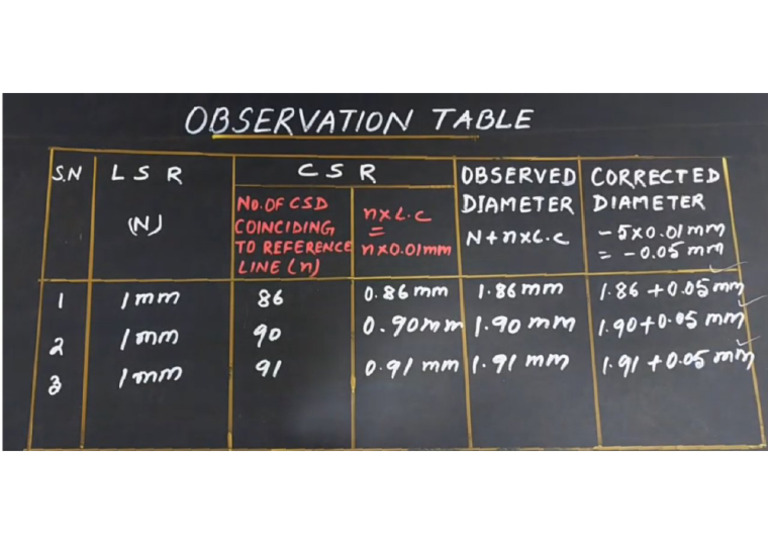 OBSERVATION TABLE
S.N
L S R
(N)
C S R
No. OF CSD
COINCIDING
TO REFERENCE
LINE (n)
n×L.C
=
n×0.01mm
OBSERVED
DIAMETER
N+n×L.C
CORRECTED
DIAMETER
-5×0.01mm
= -0.05 mm
1 1mm 86 0.86mm 1.86mm 1.86 +0.05mm
2 1mm 90 0.90mm 1.90 mm 1.90+0.05 mm
3 1mm 91 0.91 mm 1.91 mm 1.91 +0.05 mm